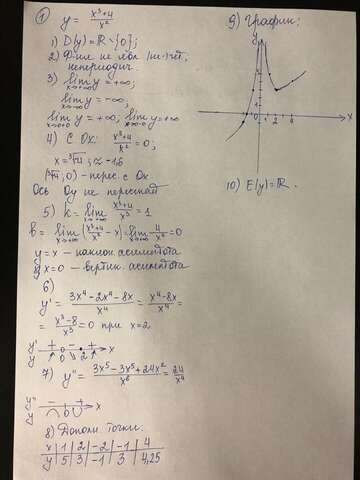 ① y = (x³+4)/x²
1) D(y)=ℝ∖{0};
2) Ф-ия не явл (не-)чет,
непериодич.
3) lim x→+∞ y = +∞;
lim x→-∞ y = -∞;
lim x→+0 y = +∞; lim x→-0 y = +∞
4) С Ox: (x³+4)/x² = 0;
x = ∛4; ≈ -1.6
(∛4; 0) - перес. с Ox
Ось Oy не пересекает
5) k = lim x→∞ (x³+4)/x³ = 1
b = lim x→∞ ((x³+4)/x² - x) = lim x→∞ 4/x² = 0
y = x - наклон. асимптота
x=0 - вертик. асимптота
6)
y' = (3x⁴-2x⁴-8x)/x⁴ = (x⁴-8x)/x⁴ =
= (x³-8)/x³ = 0 при x=2
y' + 0 - + x
y 2
7) y'' = (3x⁵-3x⁵+24x²)/x⁶ = 24/x⁴
y'' - + x
y 0
8) Дополн. точки.
x | 1 | 2 | -2 | -1 | 4
y | 5 | 3 | -1 | 3 | 4,25
9) График:
y
2 4 x
10) E(y)=ℝ.